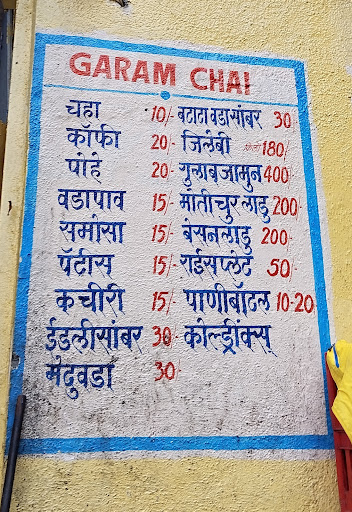 GARAM CHAI
चहा 10/- बटाटा वडासांबर 30/
कॉफी 20/- जिलेबी 180/
पोहे 20/- गुलाबजामुन 400/
वडापाव 15/- मोतीचुर लाडु 200/
समोसा 15/- बेसनलाडु 200/
पॅटीस 15/- राईसप्लेट 50/
कचीरी 15/- पाणीबॉटल 10-20
ईडलीसांबर 30/- कोल्ड्रींक्स्
मेदुवडा 30/